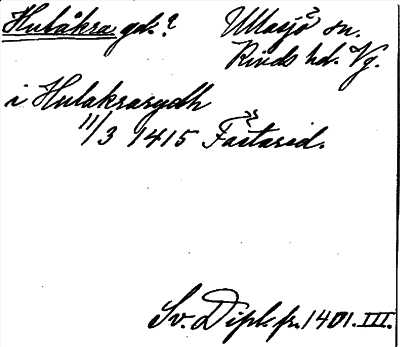 Hulåkra gd.? Ullasjö sn.
Kinds hd. Vg.
i Hulakrarydh
11/3 1415 Fastasid.
Sv. Dipl. fr. 1401. III.